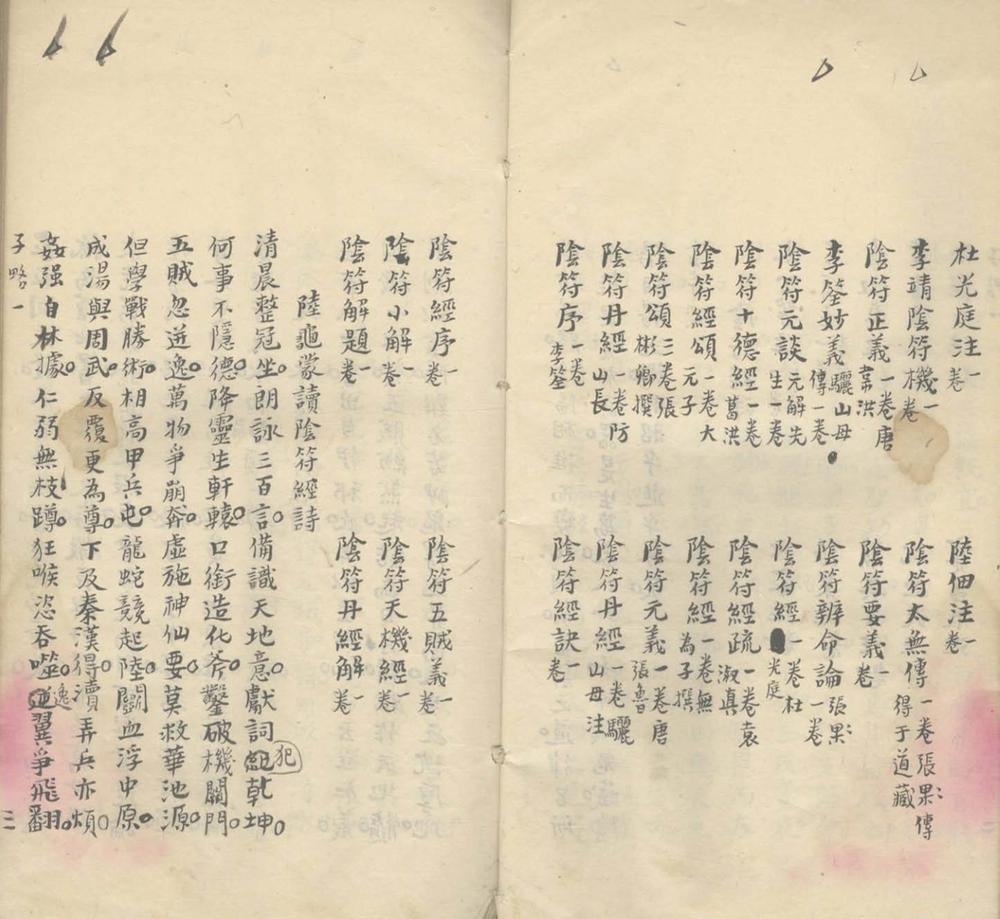 杜光庭注一卷　陸佃注一卷
李靖陰符機一卷　陰符太無傳一卷張果傳得于道藏
陰符正義一卷唐韋洪　陰符要義一卷
李筌妙義驪山母傳一卷　陰符辨命論張果一卷
陰符元談元解先生一卷　陰符經一卷杜光庭
陰符十德經一卷葛洪　陰符經疏一卷袁淑真
陰符經頌一卷大元子　陰符經一卷無為子撰
陰符頌三卷張彬卿撰　陰符元義一卷唐張魯
陰符丹經一卷防山長　陰符丹經一卷驪山母注
陰符序一卷李筌　陰符經訣一卷
陰符經序一卷　陰符五賊義一卷
陰符小解一卷　陰符天機經一卷
陰符解題一卷　陰符丹經解一卷
陸龜蒙讀陰符經詩
清晨整冠坐朗詠三百言備識天地意獻詞紀犯乾坤
何事不隱德降靈生軒轅口銜造化斧鑿破機關門
五賊忽迸逸萬物爭崩奔虛施神仙要莫救華池源
但學戰勝術相高甲兵屯龍蛇競起陸鬬血浮中原
成湯與周武反覆更為尊下及秦漢得瀆弄兵亦煩
姦强自林據仁弱無枝蹲狂喉恣吞噬逆逸翼爭飛翻
子略一　三